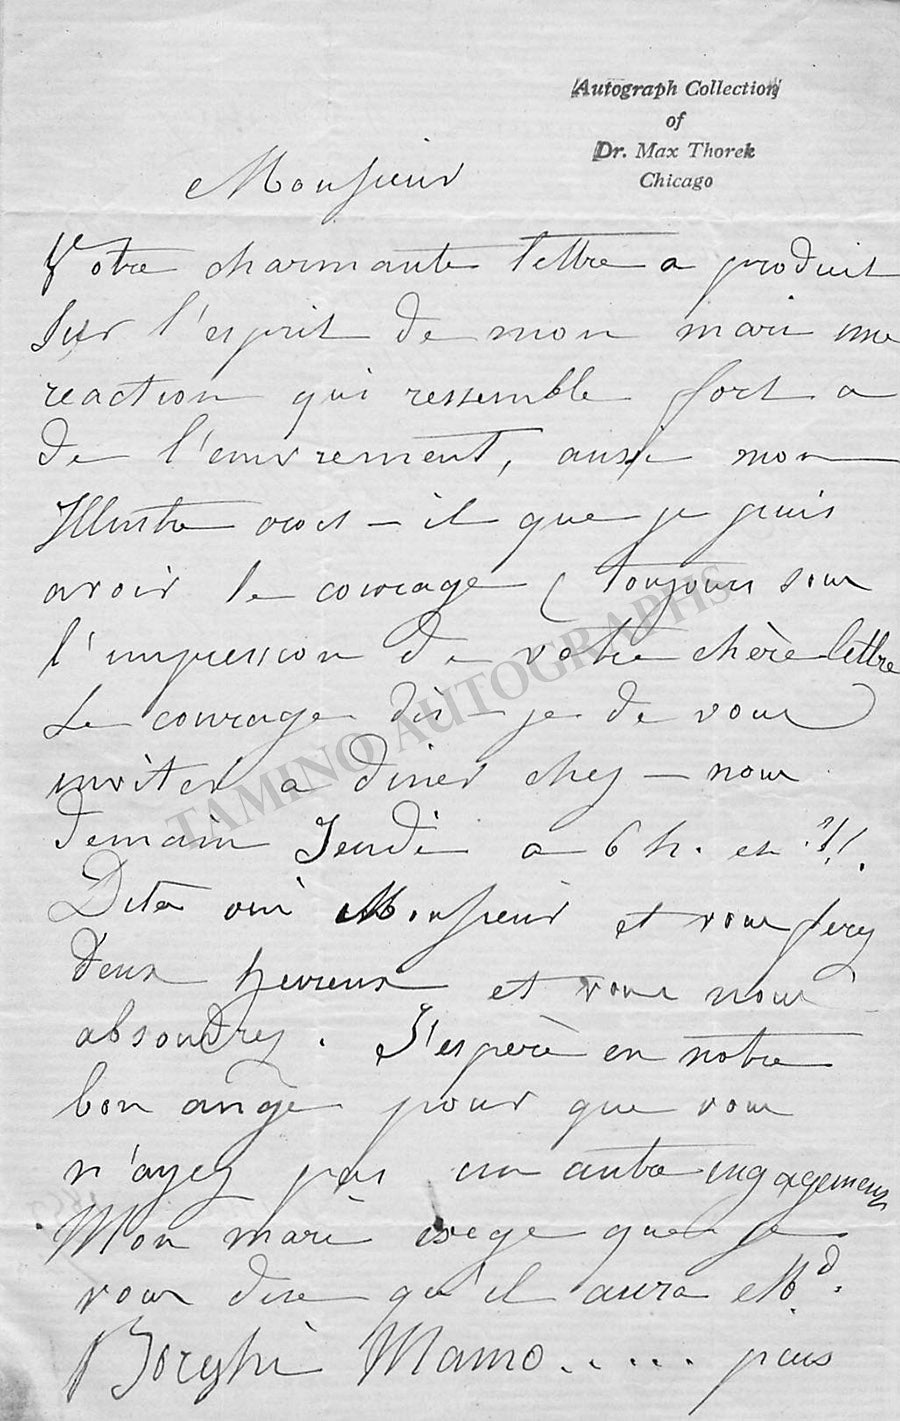 Autograph Collection
of
Dr. Max Thorek
Chicago
Monsieur
Votre charmante lettre a produit
sur l'esprit de mon mari une
reaction qui ressemble fort a
de l'enivrement, aussi mon
Illustre que je puis
avoir le courage (toujours sous
l'impression de votre chère lettre
Le courage dis-je de vous
inviter a diner chez-nous
demain Jeudi a 6 h. et ?!!.
Dites oui Monsieur et vous ferez
deux heureux et vous nous
absoudrez. J'espère en notre
bon ange pour que vous
n'ayez pas un autre engagement
Mon mari exege que je
vous dise qu'il aura Md.
Borghi Mamo...... puis
TAMINO AUTOGRAPHS